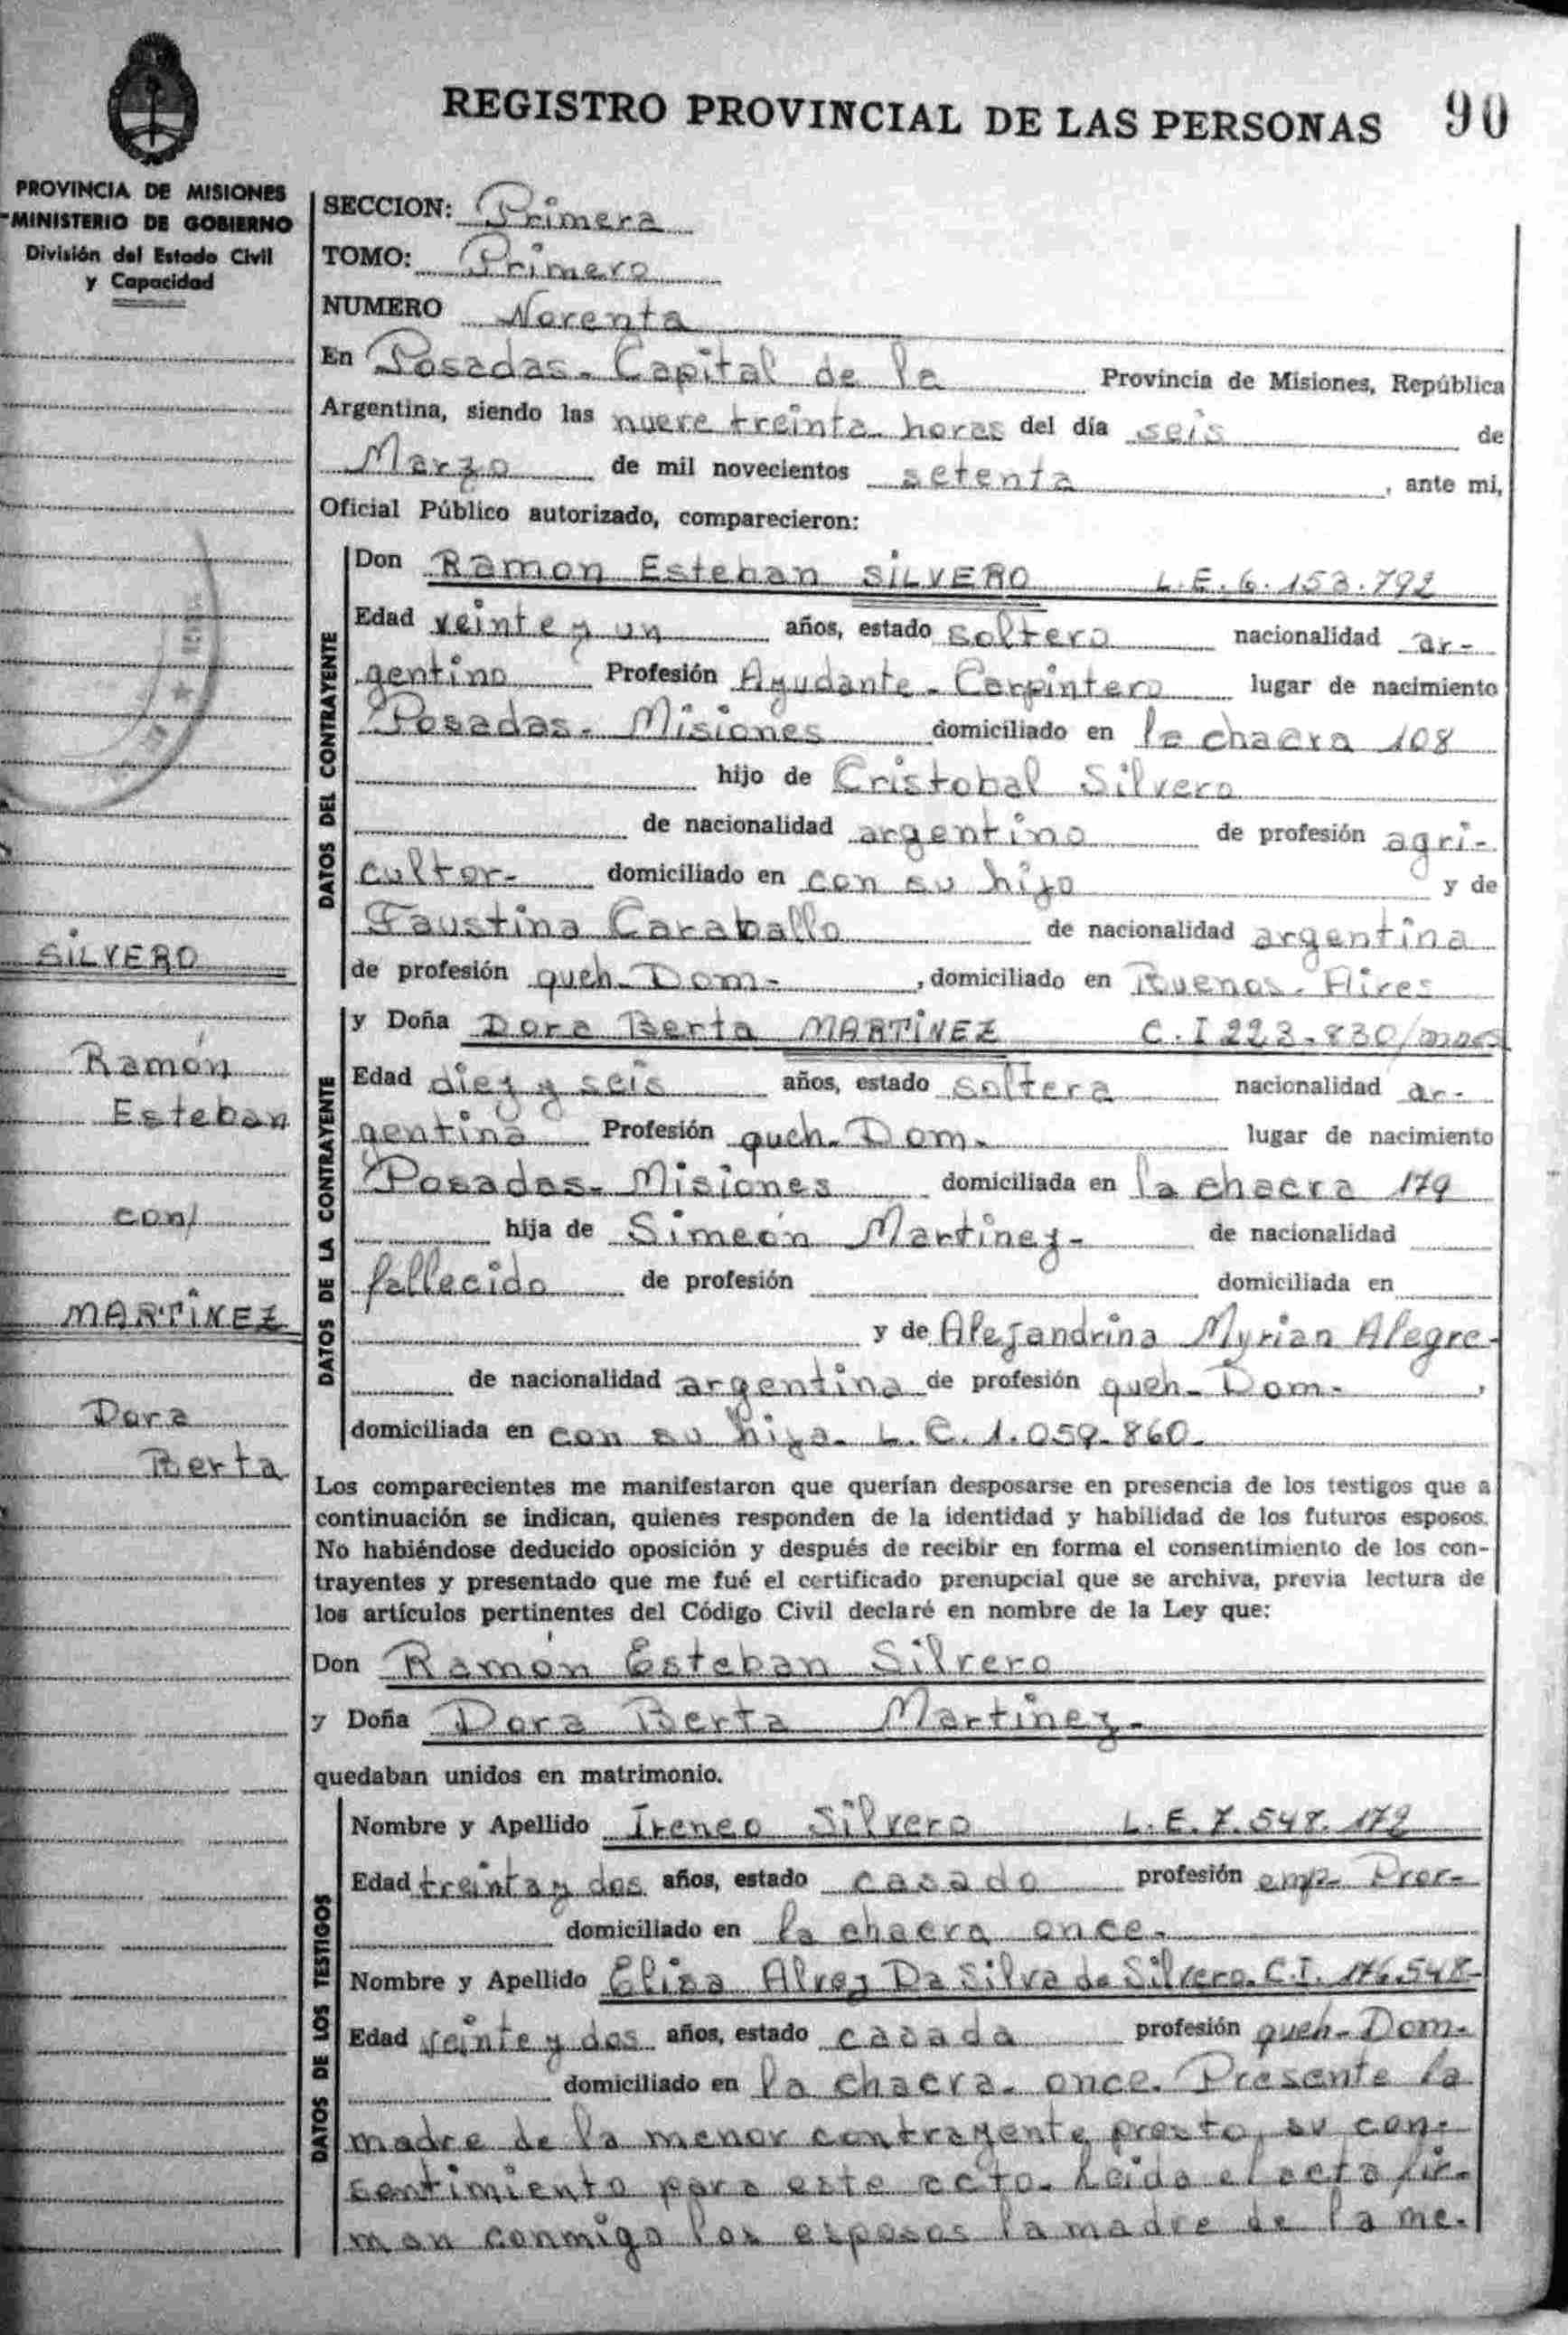 REGISTRO PROVINCIAL DE LAS PERSONAS 90
PROVINCIA DE MISIONES
MINISTERIO DE GOBIERNO
División del Estado Civil
y Capacidad
SECCION: Primera
TOMO: Primero
NUMERO Noventa
En Posadas. Capital de la Provincia de Misiones, República
Argentina, siendo las nueve treinta horas del día seis de
Marzo de mil novecientos setenta, ante mi,
Oficial Público autorizado, comparecieron:
DATOS DEL CONTRAYENTE
Don Ramon Esteban SILVERO L.E. 6.153.792
Edad veinte y un años, estado soltero nacionalidad ar-
gentino Profesión Ayudante-Carpintero lugar de nacimiento
Posadas- Misiones domiciliado en la chacra 108
hijo de Cristobal Silvero
de nacionalidad argentino de profesión agri-
cultor- domiciliado en con su hijo y de
Faustina Caraballo de nacionalidad argentina
de profesión queh. Dom-, domiciliado en Buenos. Aires
DATOS DE LA CONTRAYENTE
y Doña Dora Berta MARTÍNEZ C.I 223.830
Edad diez y seis años, estado soltera nacionalidad ar-
gentina Profesión queh. Dom. lugar de nacimiento
Posadas- Misiones domiciliada en la chacra 179
hija de Simeón Martinez- de nacionalidad
fallecido de profesión domiciliada en
y de Alejandrina Myrian Alegre-
de nacionalidad argentina de profesión queh- Dom-,
domiciliada en con su hija. L.C. 1.059.860.
SILVERO
Ramón
Esteban
con/
MARTINEZ
Dora
Berta
Los comparecientes me manifestaron que querían desposarse en presencia de los testigos que a
continuación se indican, quienes responden de la identidad y habilidad de los futuros esposos.
No habiéndose deducido oposición y después de recibir en forma el consentimiento de los con-
trayentes y presentado que me fué el certificado prenupcial que se archiva, previa lectura de
los artículos pertinentes del Código Civil declaré en nombre de la Ley que:
Don Ramón Esteban Silvero
y Doña Dora Berta Martinez-
quedaban unidos en matrimonio.
DATOS DE LOS TESTIGOS
Nombre y Apellido Ireneo Silvero L.E. 7.548.172
Edad treinta y dos años, estado casado profesión emp. Prov-
domiciliado en la chacra once.
Nombre y Apellido Elisa Alvez Da Silva de Silvero. C.I. 176.548-
Edad veinte y dos años, estado casada profesión queh- Dom-
domiciliado en la chacra. once. Presente la
madre de la menor contrayente presto su con-
sentimiento para este acto. Leido el acta fir-
man conmigo los esposos la madre de la me-